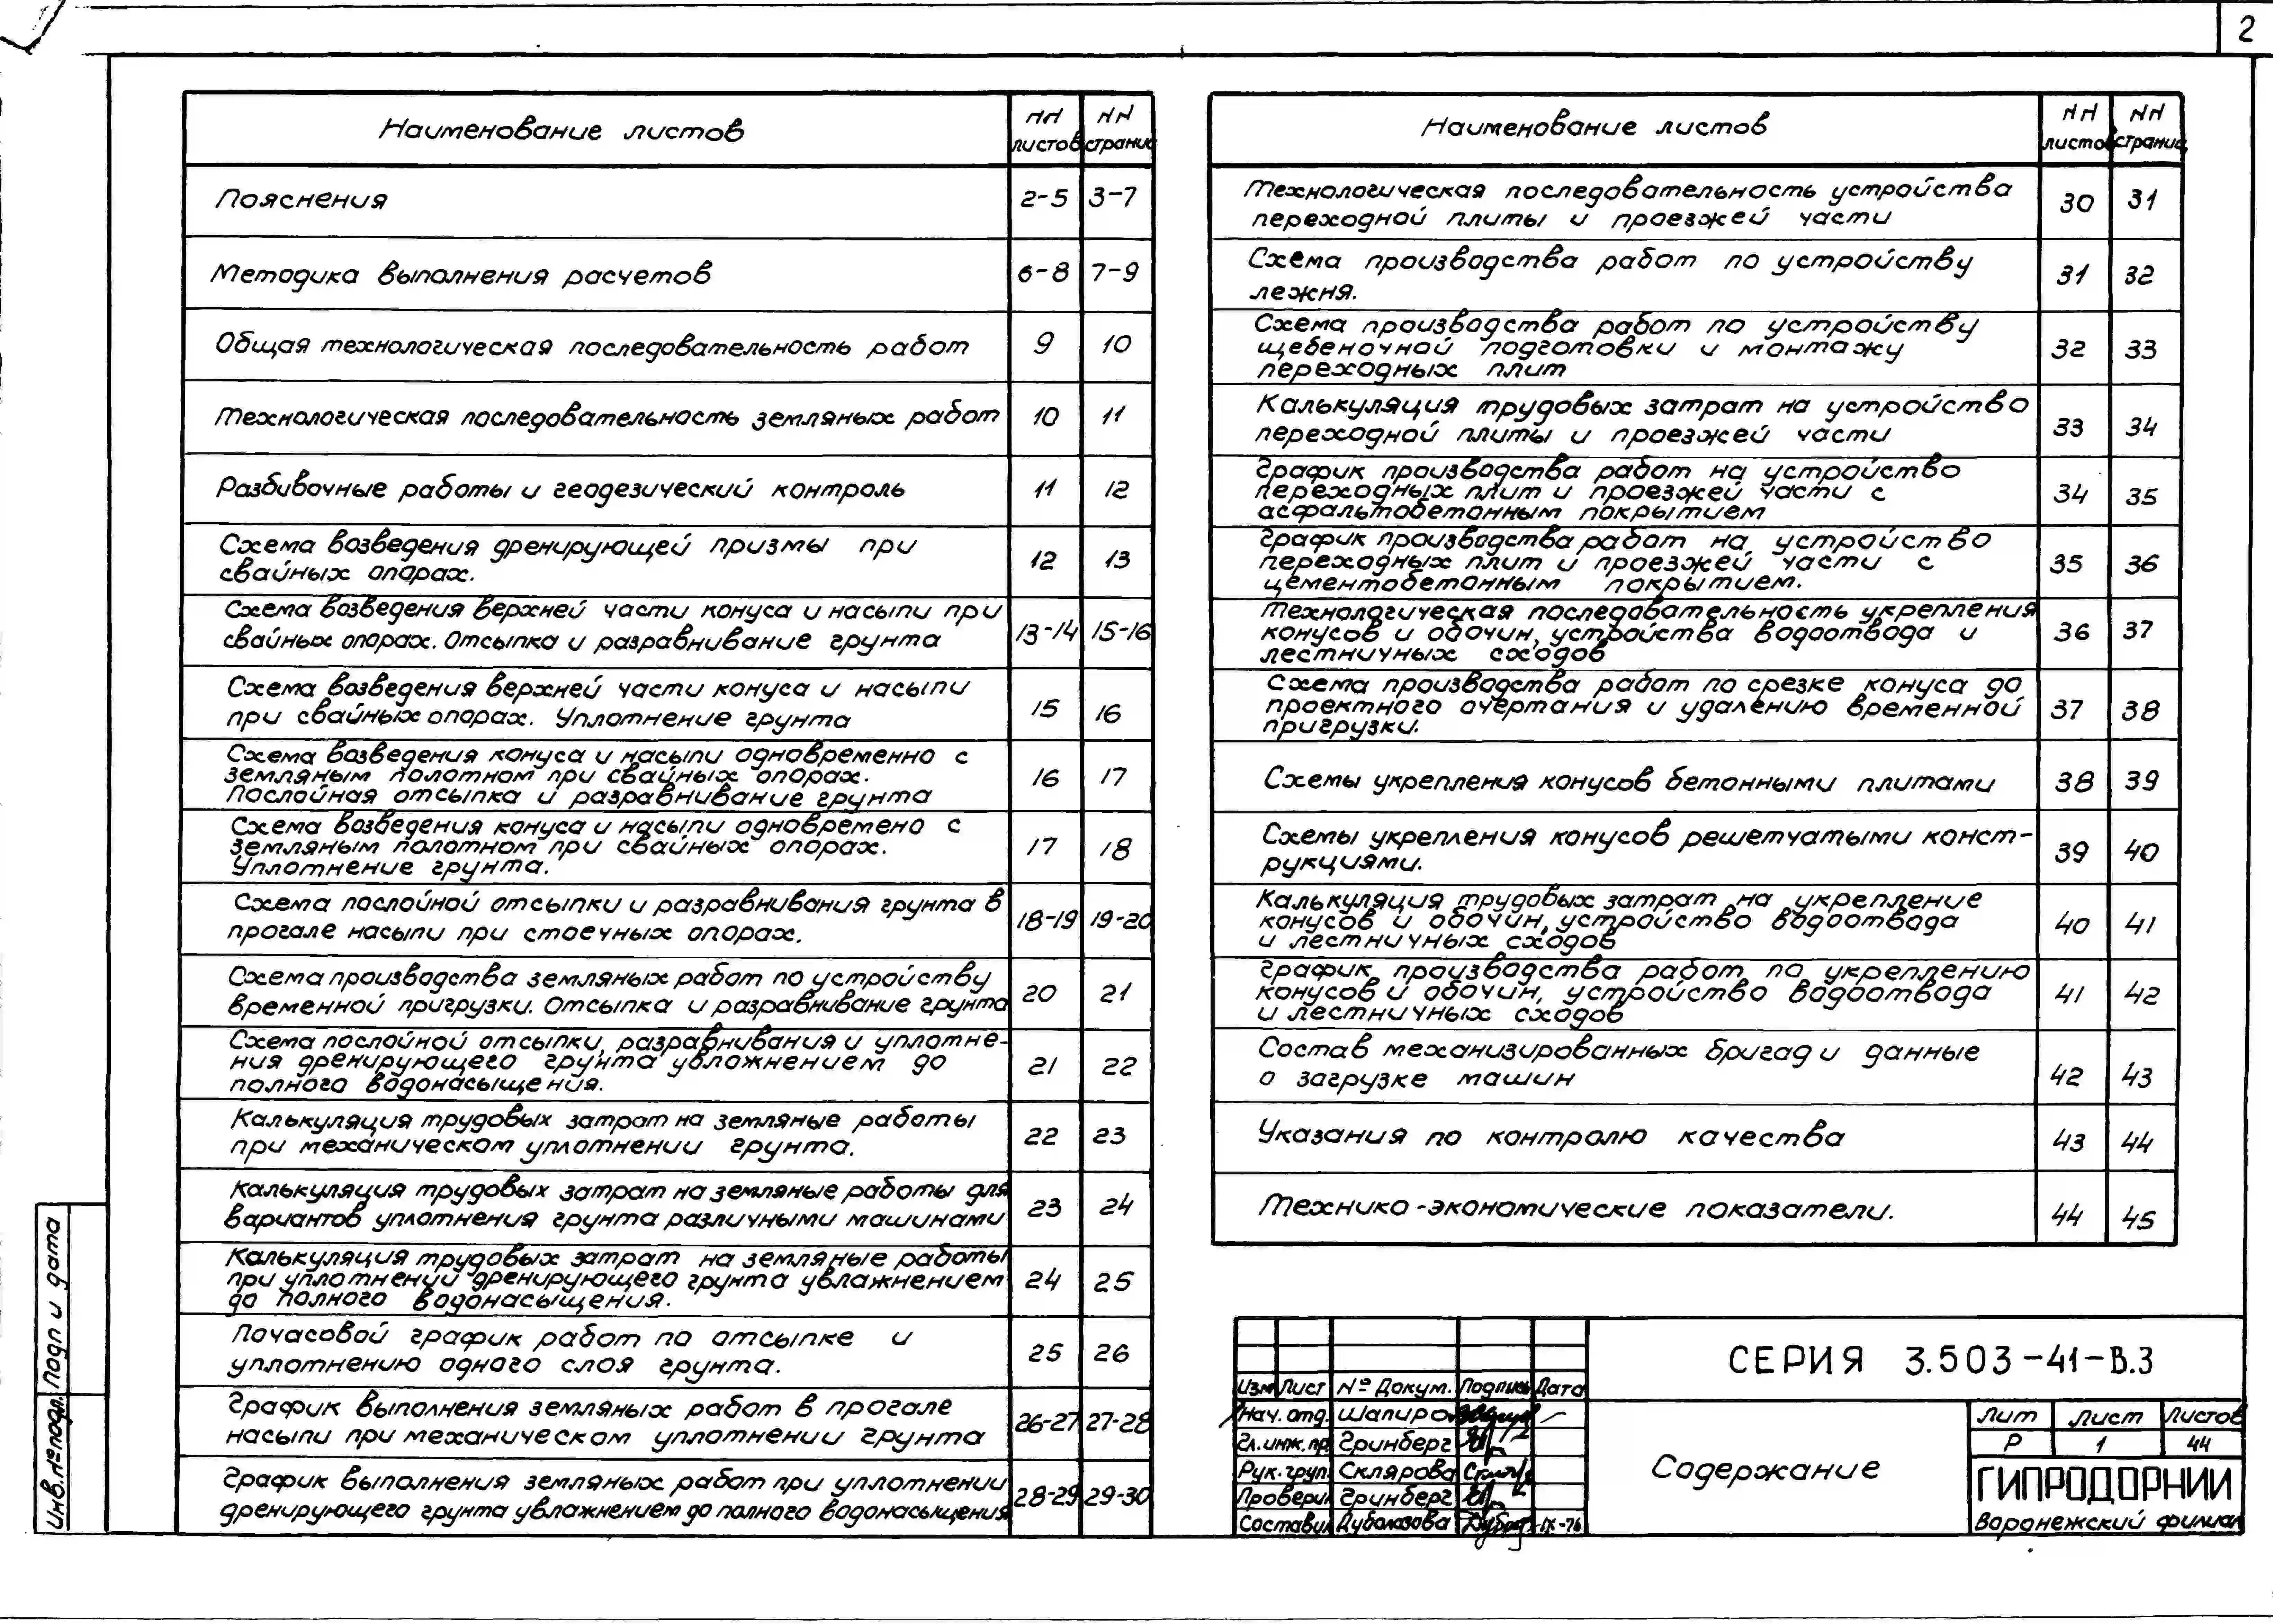 2
Наименование листов
NN листов
NN страниц
Пояснения 2-5 3-7
Методика выполнения расчетов 6-8 7-9
Общая технологическая последовательность работ 9 10
Технологическая последовательность земляных работ 10 11
Разбивочные работы и геодезический контроль 11 12
Схема возведения дренирующей призмы при
свайных опорах. 12 13
Схема возведения верхней части конуса и насыпи при
свайных опорах. Отсыпка и разравнивание грунта 13-14 15-16
Схема возведения верхней части конуса и насыпи
при свайных опорах. Уплотнение грунта 15 16
Схема возведения конуса и насыпи одновременно с
земляным полотном при свайных опорах.
Послойная отсыпка и разравнивание грунта 16 17
Схема возведения конуса и насыпи одновремено с
земляным полотном при свайных опорах.
Уплотнение грунта. 17 18
Схема послойной отсыпки и разравнивания грунта в
прогале насыпи при стоечных опорах. 18-19 19-20
Схема производства земляных работ по устройству
временной пригрузки. Отсыпка и разравнивание грунта 20 21
Схема послойной отсыпки, разравнивания и уплотне-
ния дренирующего грунта увложнением до
полного водонасыщения. 21 22
Калькуляция трудовых затрат на земляные работы
при механическом уплотнении грунта. 22 23
Калькуляция трудовых затрат на земляные работы для
вариантов уплотнения грунта различными машинами 23 24
Калькуляция трудовых затрат на земляные работы
при уплотнении дренирующего грунта увлажнением
до полного водонасыщения. 24 25
Почасовой график работ по отсыпке и
уплотнению одного слоя грунта. 25 26
График выполнения земляных работ в прогале
насыпи при механическом уплотнении грунта 26-27 27-28
График выполнения земляных работ при уплотнении
дренирующего грунта увлажнением до полного водонасыщения 28-29 29-30
Наименование листов
NN листов
NN страниц
Технологическая последовательность устройства
переходной плиты и проезжей части 30 31
Схема производства работ по устройству
лежня. 31 32
Схема производства работ по устройству
щебеночной подготовки и монтажу
переходных плит 32 33
Калькуляция трудовых затрат на устройство
переходной плиты и проезжей части 33 34
График производства работ на устройство
переходных плит и проезжей части с
асфальтобетонным покрытием 34 35
График производства работ на устройство
переходных плит и проезжей части с
цементобетонным покрытием. 35 36
Технологическая последовательность укрепления
конусов и обочин, устройства водоотвода и
лестничных сходов 36 37
Схема производства работ по срезке конуса до
проектного очертания и удалению временной
пригрузки. 37 38
Схемы укрепления конусов бетонными плитами 38 39
Схемы укрепления конусов решетчатыми конст-
рукциями. 39 40
Калькуляция трудовых затрат на укрепление
конусов и обочин, устройство водоотвода
и лестничных сходов 40 41
График производства работ по укреплению
конусов и обочин, устройство водоотвода
и лестничных сходов 41 42
Состав механизированных бригад и данные
о загрузке машин 42 43
Указания по контролю качества 43 44
Технико-экономические показатели. 44 45
Изм Лист № Докум. Подпись Дата
Нач. отд. Шапиро
Гл. инж. пр. Гринберг
Рук. груп. Склярова
Проверил Гринберг
Составил Дуболазова IX-76
СЕРИЯ 3.503-41-В.3
Содержание
Лит Лист Листов
Р 1 44
ГИПРОДОРНИИ
Воронежский филиал
Подп и дата
Инв. № подл.